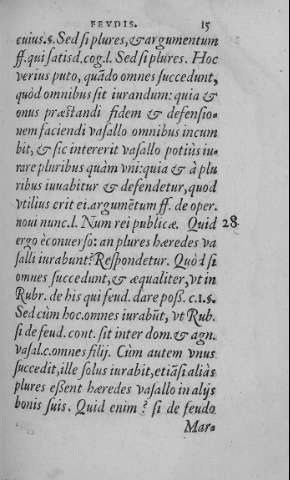 FEVDIS. 15
cuius.s. Sed si plures, & argumentum
ff. qui satisd. cog. l. Sed si plures. Hoc
verius puto, quãdo omnes succedunt,
quòd omnibus sit iurandum: quia &
onus præstandi fidem & defensio-
nem faciendi vasallo omnibus incum
bit, & sic intererit vasallo potiùs iu-
rare pluribus quàm vni: quia & à plu
ribus iuuabitur & defendetur, quod
vtilius erit ei. argumẽtum ff. de oper.
noui nunc. l. Num rei publicæ. Quid 28
ergo è conuerso: an plures hæredes va
salli iurabunt? Respondetur. Quòd si
omnes succedunt, & æqualiter, vt in
Rubr. de his qui feud. dare poss. c. 1. s.
Sed cùm hoc. omnes iurabũt, vt Rub.
si de feud. cont. sit inter dom. & agn.
vasal. c. omnes filij. Cùm autem vnus
succedit, ille solus iurabit, etiãsi aliàs
plures essent hæredes vasallo in alijs
bonis suis. Quid enim? si de feudo
Mar-